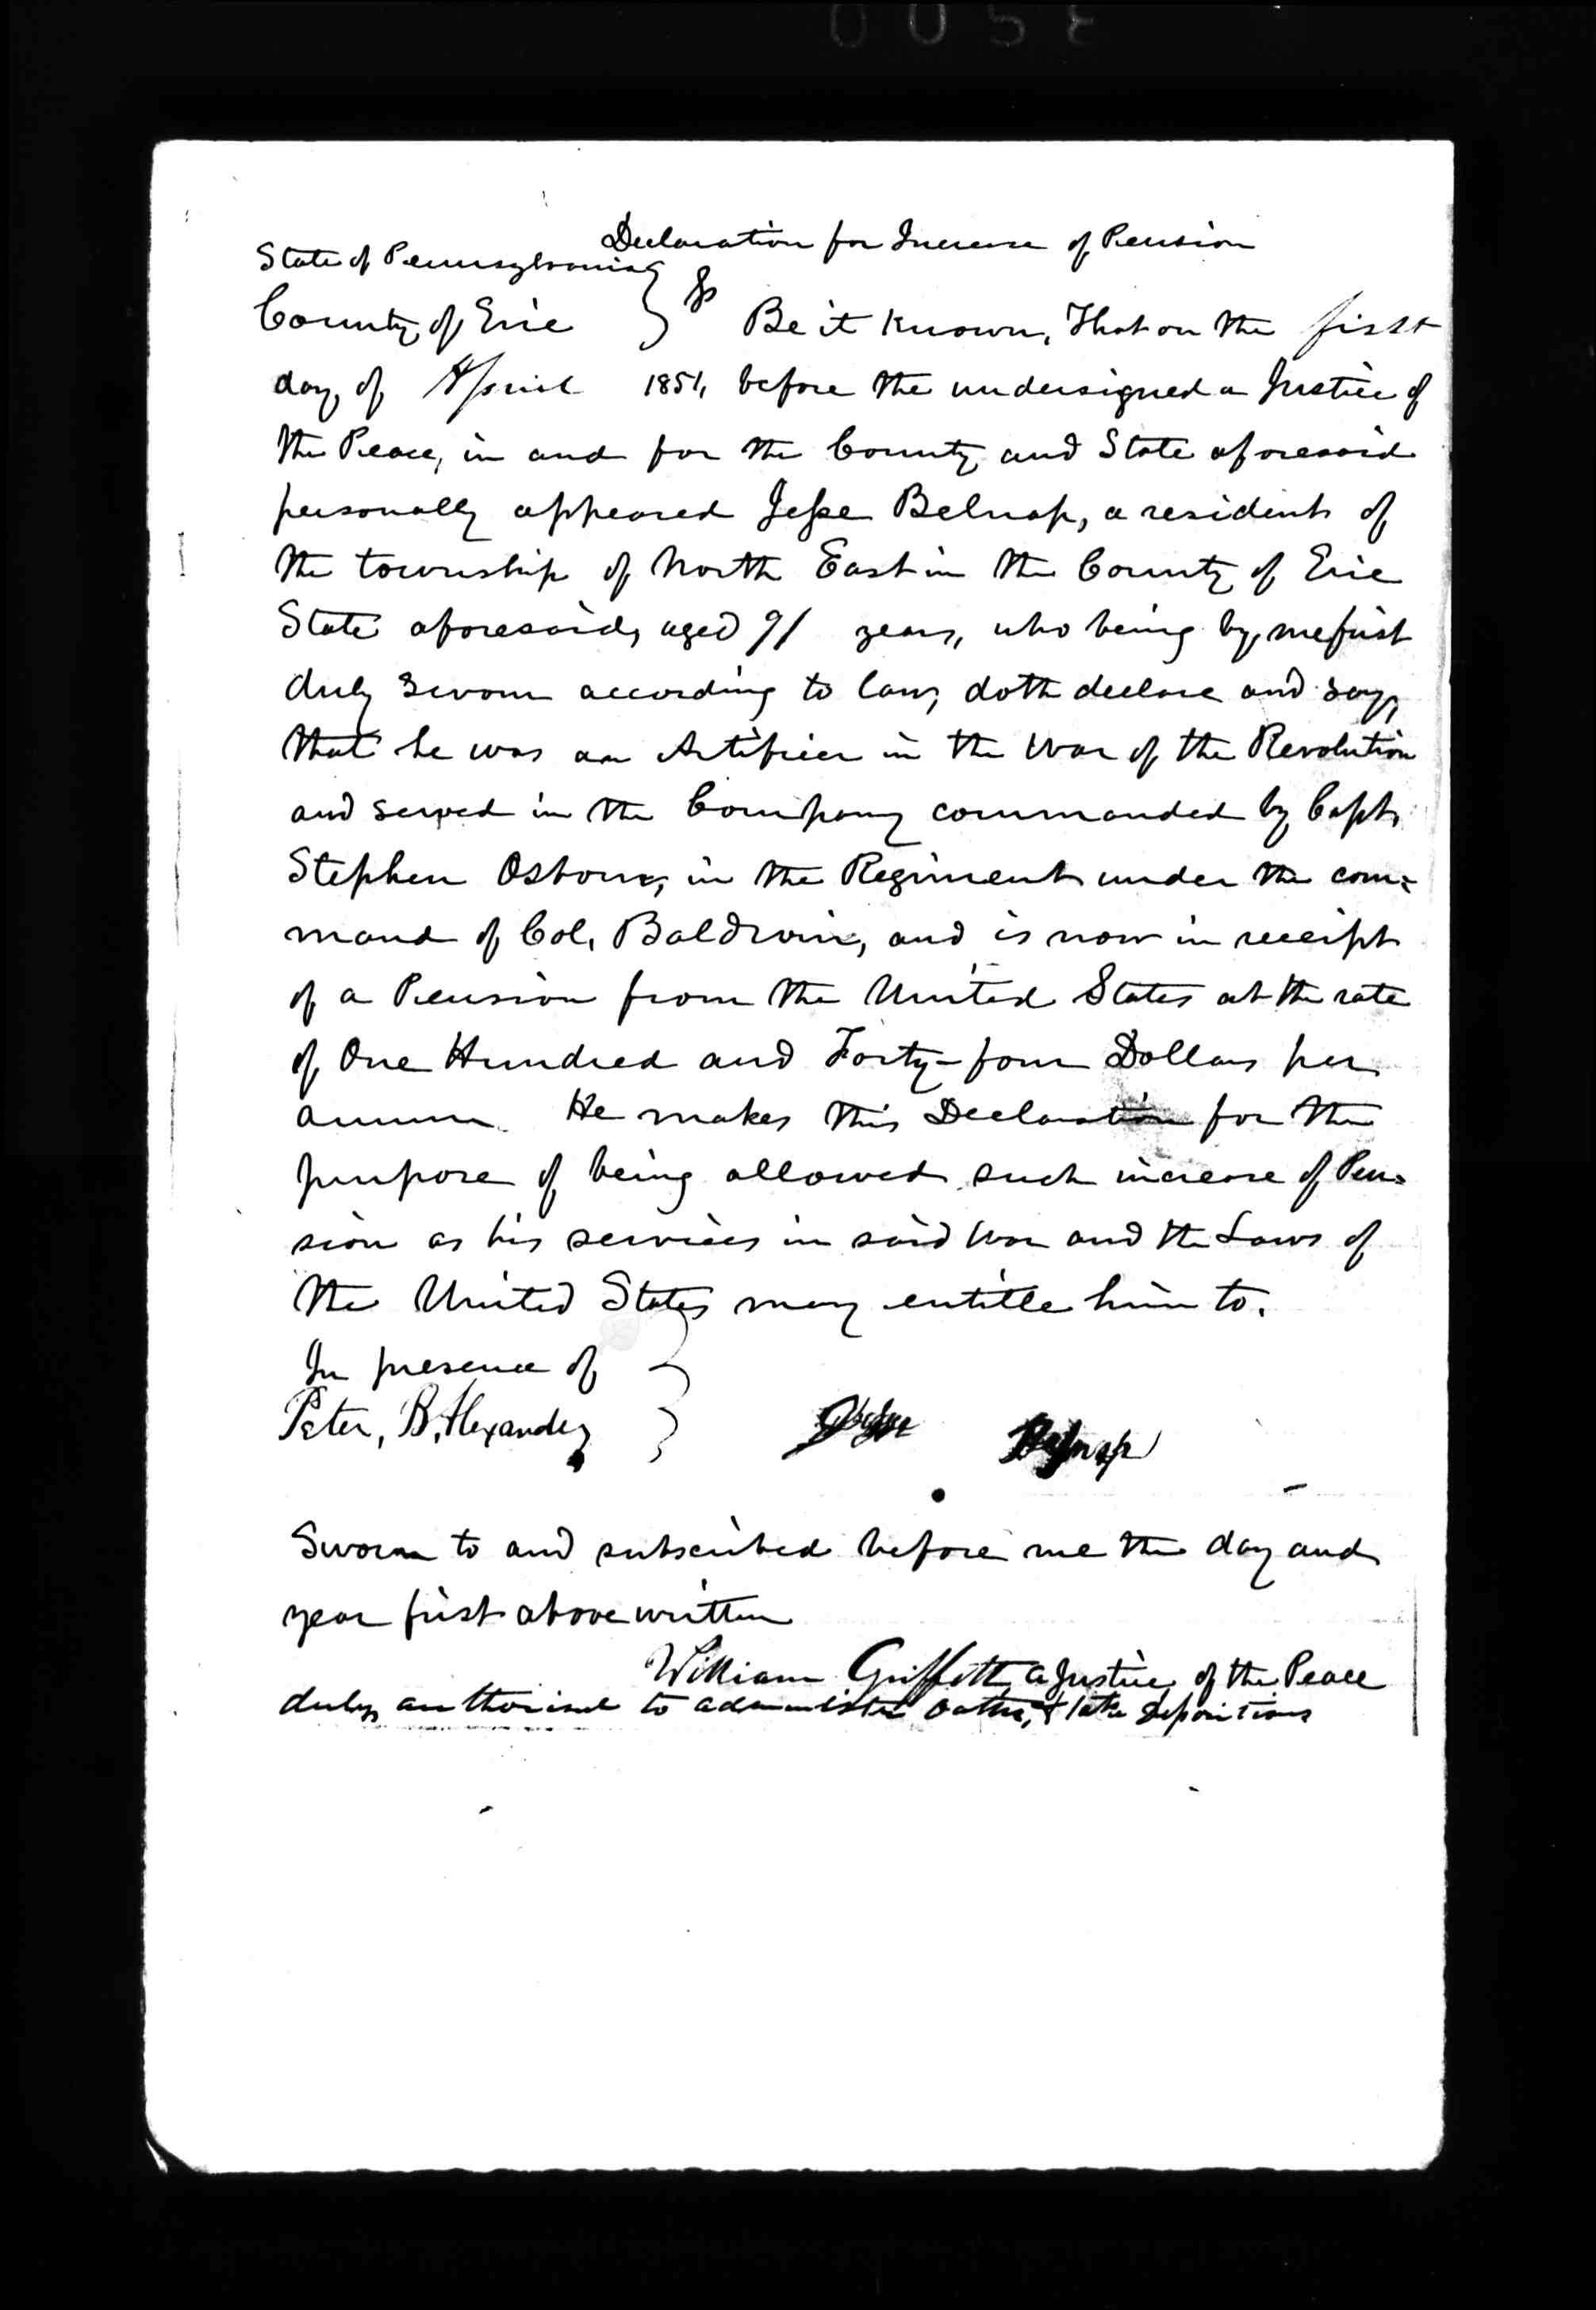 Declaration for Increase of Pension
State of Pennsylvania
County of Erie } ss Be it known, That on the first
day of April 1851, before the undersigned a Justice of
the Peace, in and for the County and State aforesaid
personally appeared Jesse Belnap, a resident of
the township of North East in the County of Erie
State aforesaid, aged 91 years, who being by me first
duly sworn according to law, doth declare and say,
that he was an Artificer in the War of the Revolution
and served in the Company commanded by Capt.
Stephen Osborn, in the Regiment under the com=
mand of Col. Baldwin, and is now in receipt
of a Pension from the United States at the rate
of One Hundred and Forty-four Dollars per
annum. He makes this Declaration for the
purpose of being allowed such increase of Pen=
sion as his services in said War and the Laws of
the United States may entitle him to.
In presence of }
Peter, B. Alexander } Jesse Belnap
Sworn to and subscribed before me the day and
year first above written
William Griffith a Justice of the Peace
duly authorised to administer oaths, & take depositions